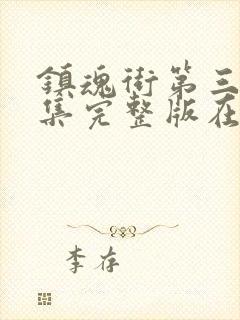 鎮魂街第三
集完整版在
李存